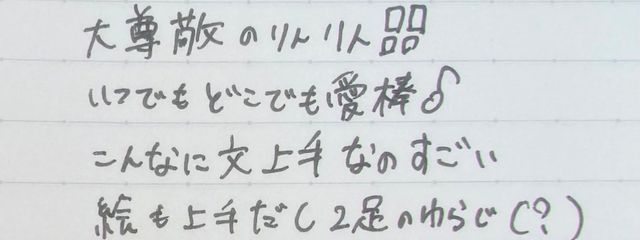 大尊敬のりんりん品
いつでもどこでも愛棒♂
こんなに文上手なのすごい
絵も上手だし2足のわらじ(?)